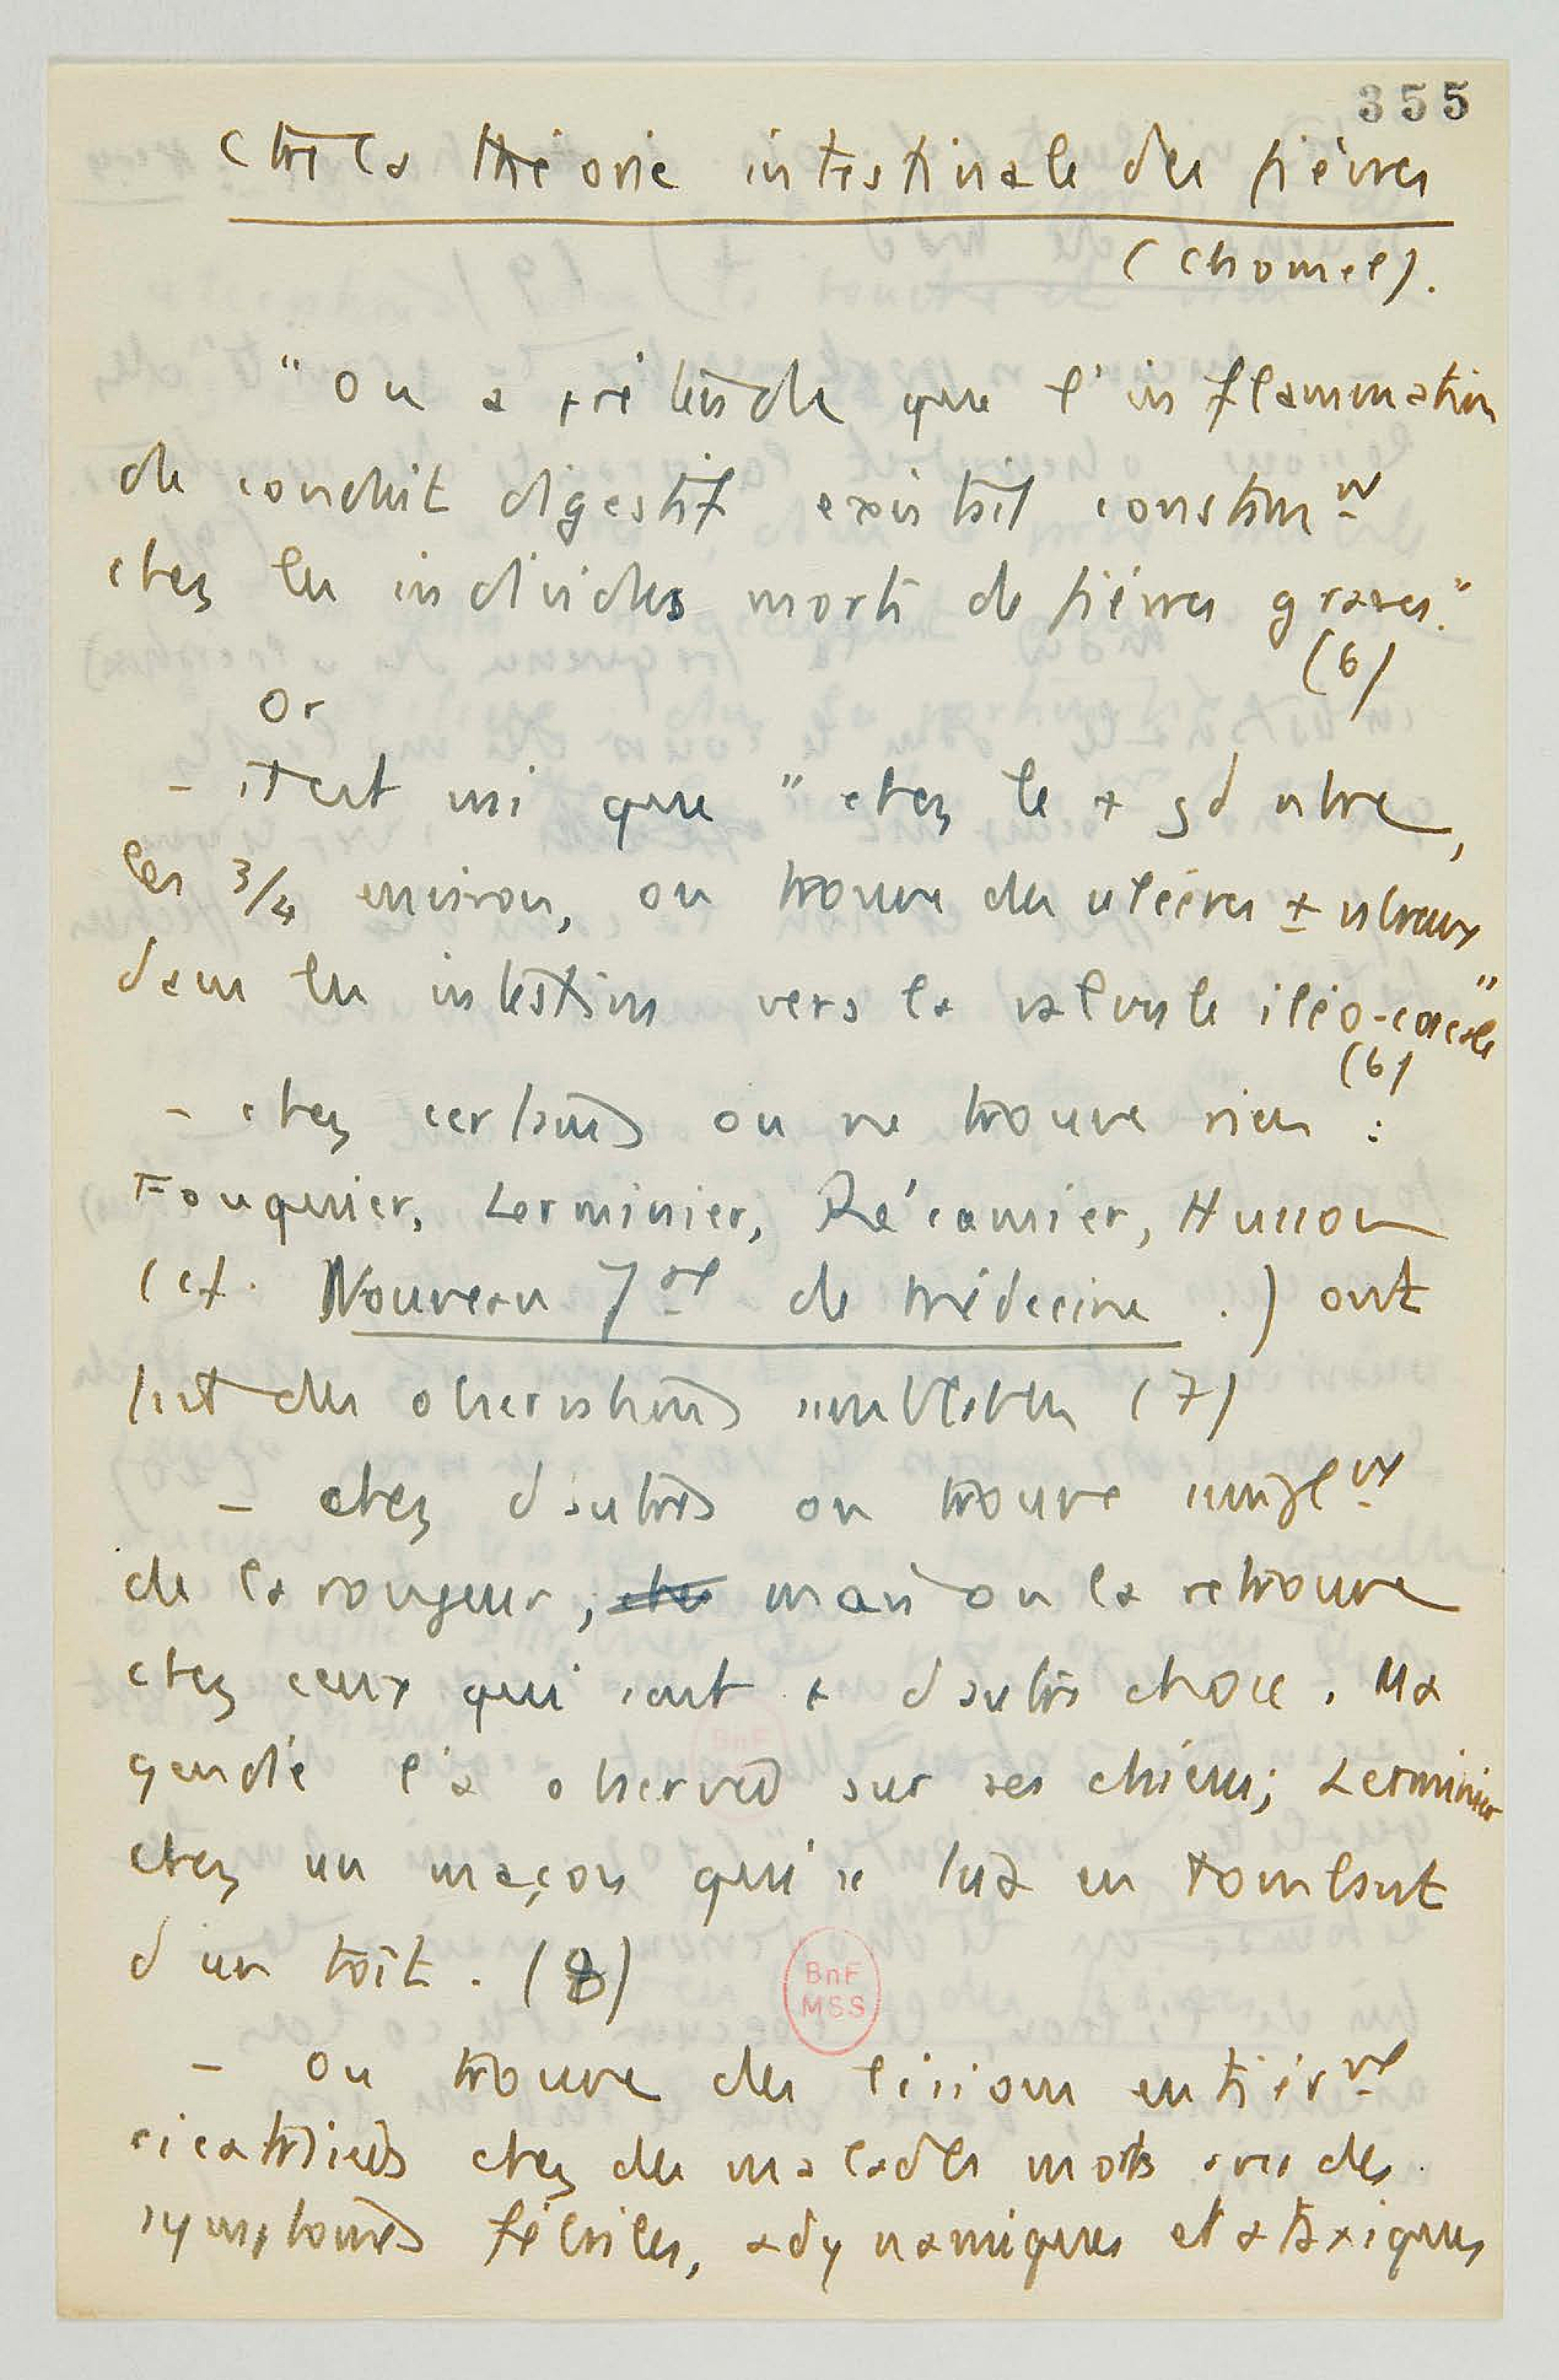 355
Ctre la théorie intestinale des fièvres
(Chomel).
"On a prétendu que l'inflammation
du conduit digestif existait constamnt
chez les individus morts de fièvres graves."
(6)
Or
- il est vrai que "chez le + gd nbre,
les 3/4 environ, on trouve des ulcères ± nbreux
dans les intestins vers la valvule iléo-caecale"
(6)
- chez certains on ne trouve rien :
Fouquier, Lerminier, Récamier, Husson
(cf. Nouveau Jal de médecine .) ont
fait des observations semblables (7)
- chez d'autres on trouve simplnt
de la rougeur, mais on la retrouve
chez ceux qui sont + d'autre chose. Ma
gendie l'a observée sur ses chiens; Lerminier
chez un maçon qui se tua en tombant
d'un toît. (8)
BnF
MSS
- On trouve des lésions entièrnt
cicatrisées chez des malades morts avec des
symptômes fébriles, adynamiques et ataxiques